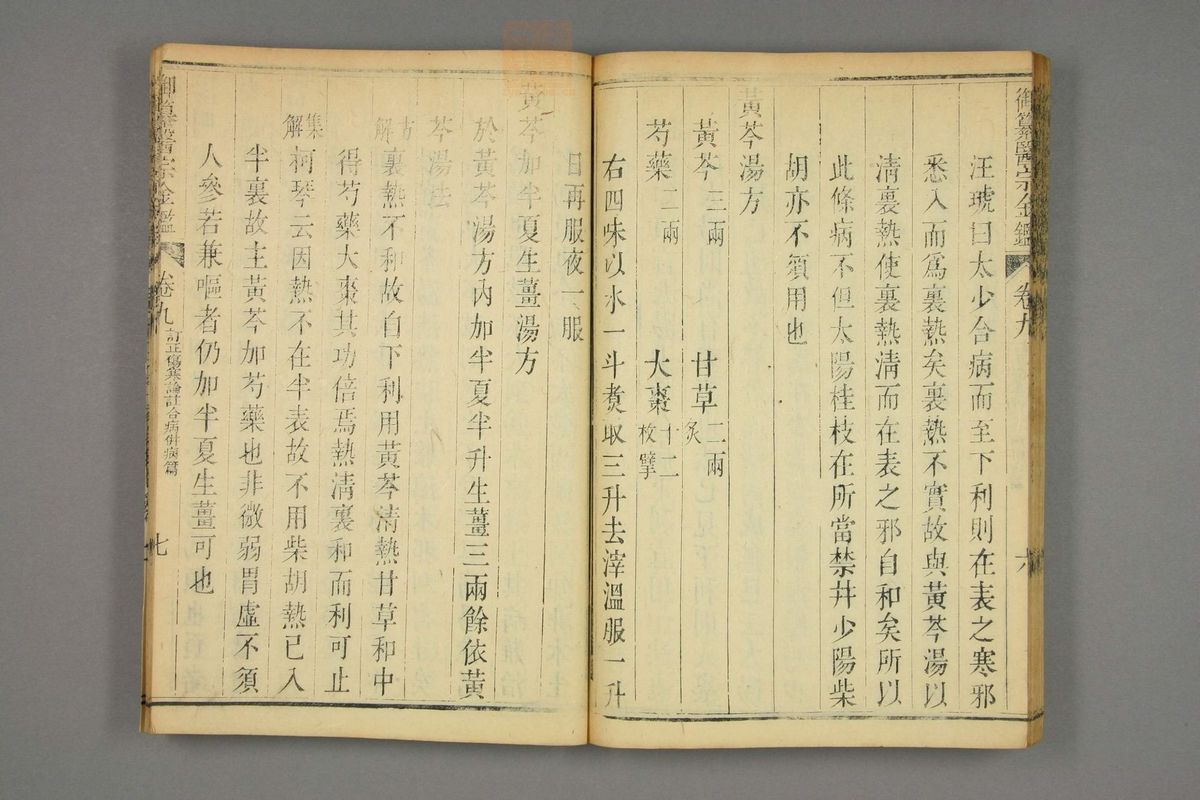 御纂醫宗金鑑 卷九 六
汪琥曰太少合病而至下利則在表之寒邪
悉入而爲裏熱矣裏熱不實故與黃芩湯以
淸裏熱使裏熱淸而在表之邪自和矣所以
此條病不但太陽桂枝在所當禁幷少陽柴
胡亦不須用也
黃芩湯方
黃芩三兩 甘草二兩炙
芍藥二兩 大棗十二枚擘
右四味以水一斗煑取三升去滓溫服一升
日再服夜一服
黃芩加半夏生薑湯方
於黃芩湯方內加半夏半升生薑三兩餘依黃
芩湯法
裏熱不和故自下利用黃芩淸熱甘草和中
得芍藥大棗其功倍焉熱淸裏和而利可止
集解 柯琴云因熱不在半表故不用柴胡熱已入
半裏故主黃芩加芍藥也非微弱胃虛不須
人參若兼嘔者仍加半夏生薑可也
御纂醫宗金鑑 卷九 訂正傷寒論註合病併病篇 七